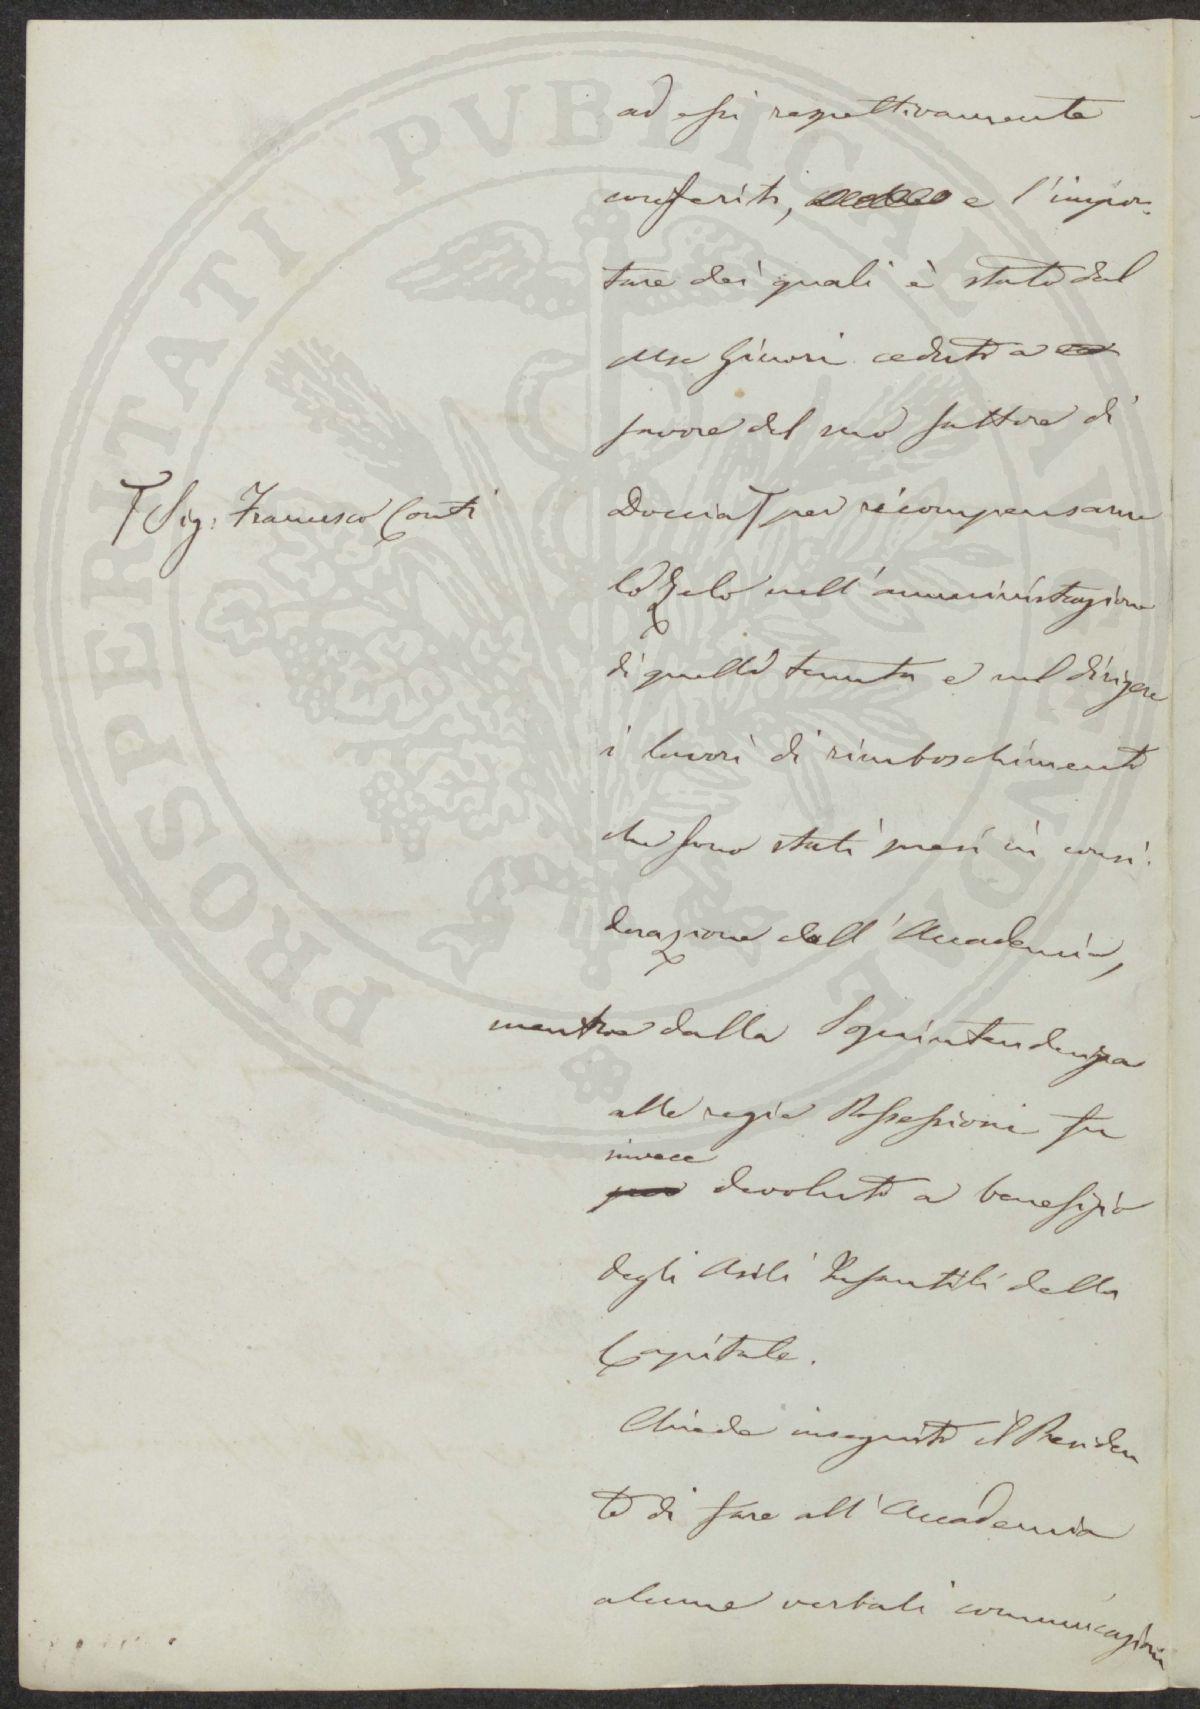 ad essi respettivamente
conferiti, e l'impor-
tare dei quali è stato dal
Mse Ginori ceduto a
favore del suo fattore di
Doccia Ꞁ per ricompensarne
Ꞁ Sig: Francesco Conti
lo zelo nell'amministrazione
di quella tenuta e nel dirigere
i lavori di rimboschimento
che sono stati presi in consi-
derazione dall'Accademia,
mentre dalla Soprintendenza
alle regie Possessioni fu
invece
però devoluto a benefizio
degli Asili Infantili della
Capitale.
Chiede inseguito il Presiden
te di fare all'Accademia
alcune verbali comunicazioni
PROSPERITATI PVBLICAE